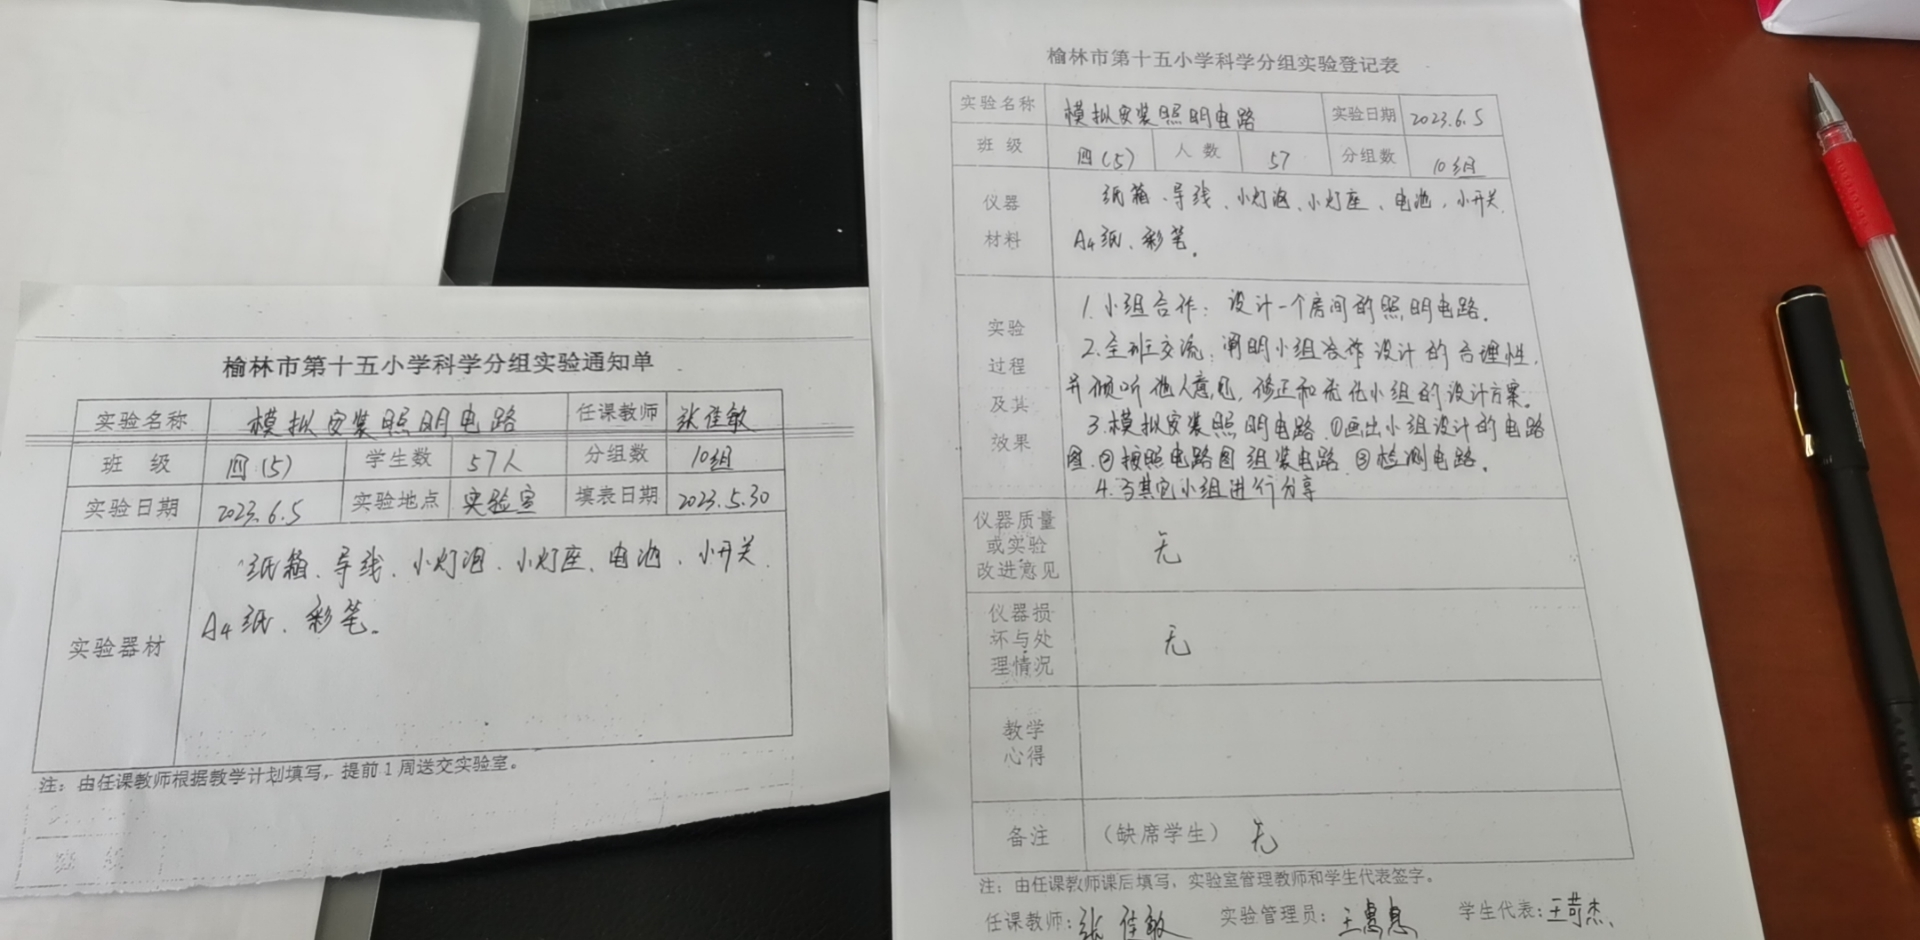 榆林市第十五小学科学分组实验通知单
实验名称 模拟安装照明电路 任课教师 张佳敏
班 级 四(5) 学生数 57人 分组数 10组
实验日期 2023.6.5 实验地点 实验室 填表日期 2023.5.30
实验器材
纸箱、导线、小灯泡、小灯座、电池、小开关
A4纸、彩笔。
注：由任课教师根据教学计划填写，提前1周送交实验室。
班 级
榆林市第十五小学科学分组实验登记表
实验名称 模拟安装照明电路 实验日期 2023.6.5
班 级 四(5) 人 数 57 分组数 10组
仪器
材料
纸箱、导线、小灯泡、小灯座、电池、小开关
A4纸、彩笔。
实验
过程
及其
效果
1.小组合作：设计一个房间的照明电路。
2.全班交流：阐明小组合作设计的合理性，
并倾听他人意见，修正和优化小组的设计方案。
3.模拟安装照明电路.①画出小组设计的电路
图.②按照电路图组装电路.③检测电路。
4.与其它小组进行分享
仪器质量
或实验
改进意见
无
仪器损
坏与处
理情况
无
教学
心得
备注 （缺席学生） 无
注：由任课教师课后填写，实验室管理教师和学生代表签字。
任课教师：张佳敏 实验管理员： 学生代表：